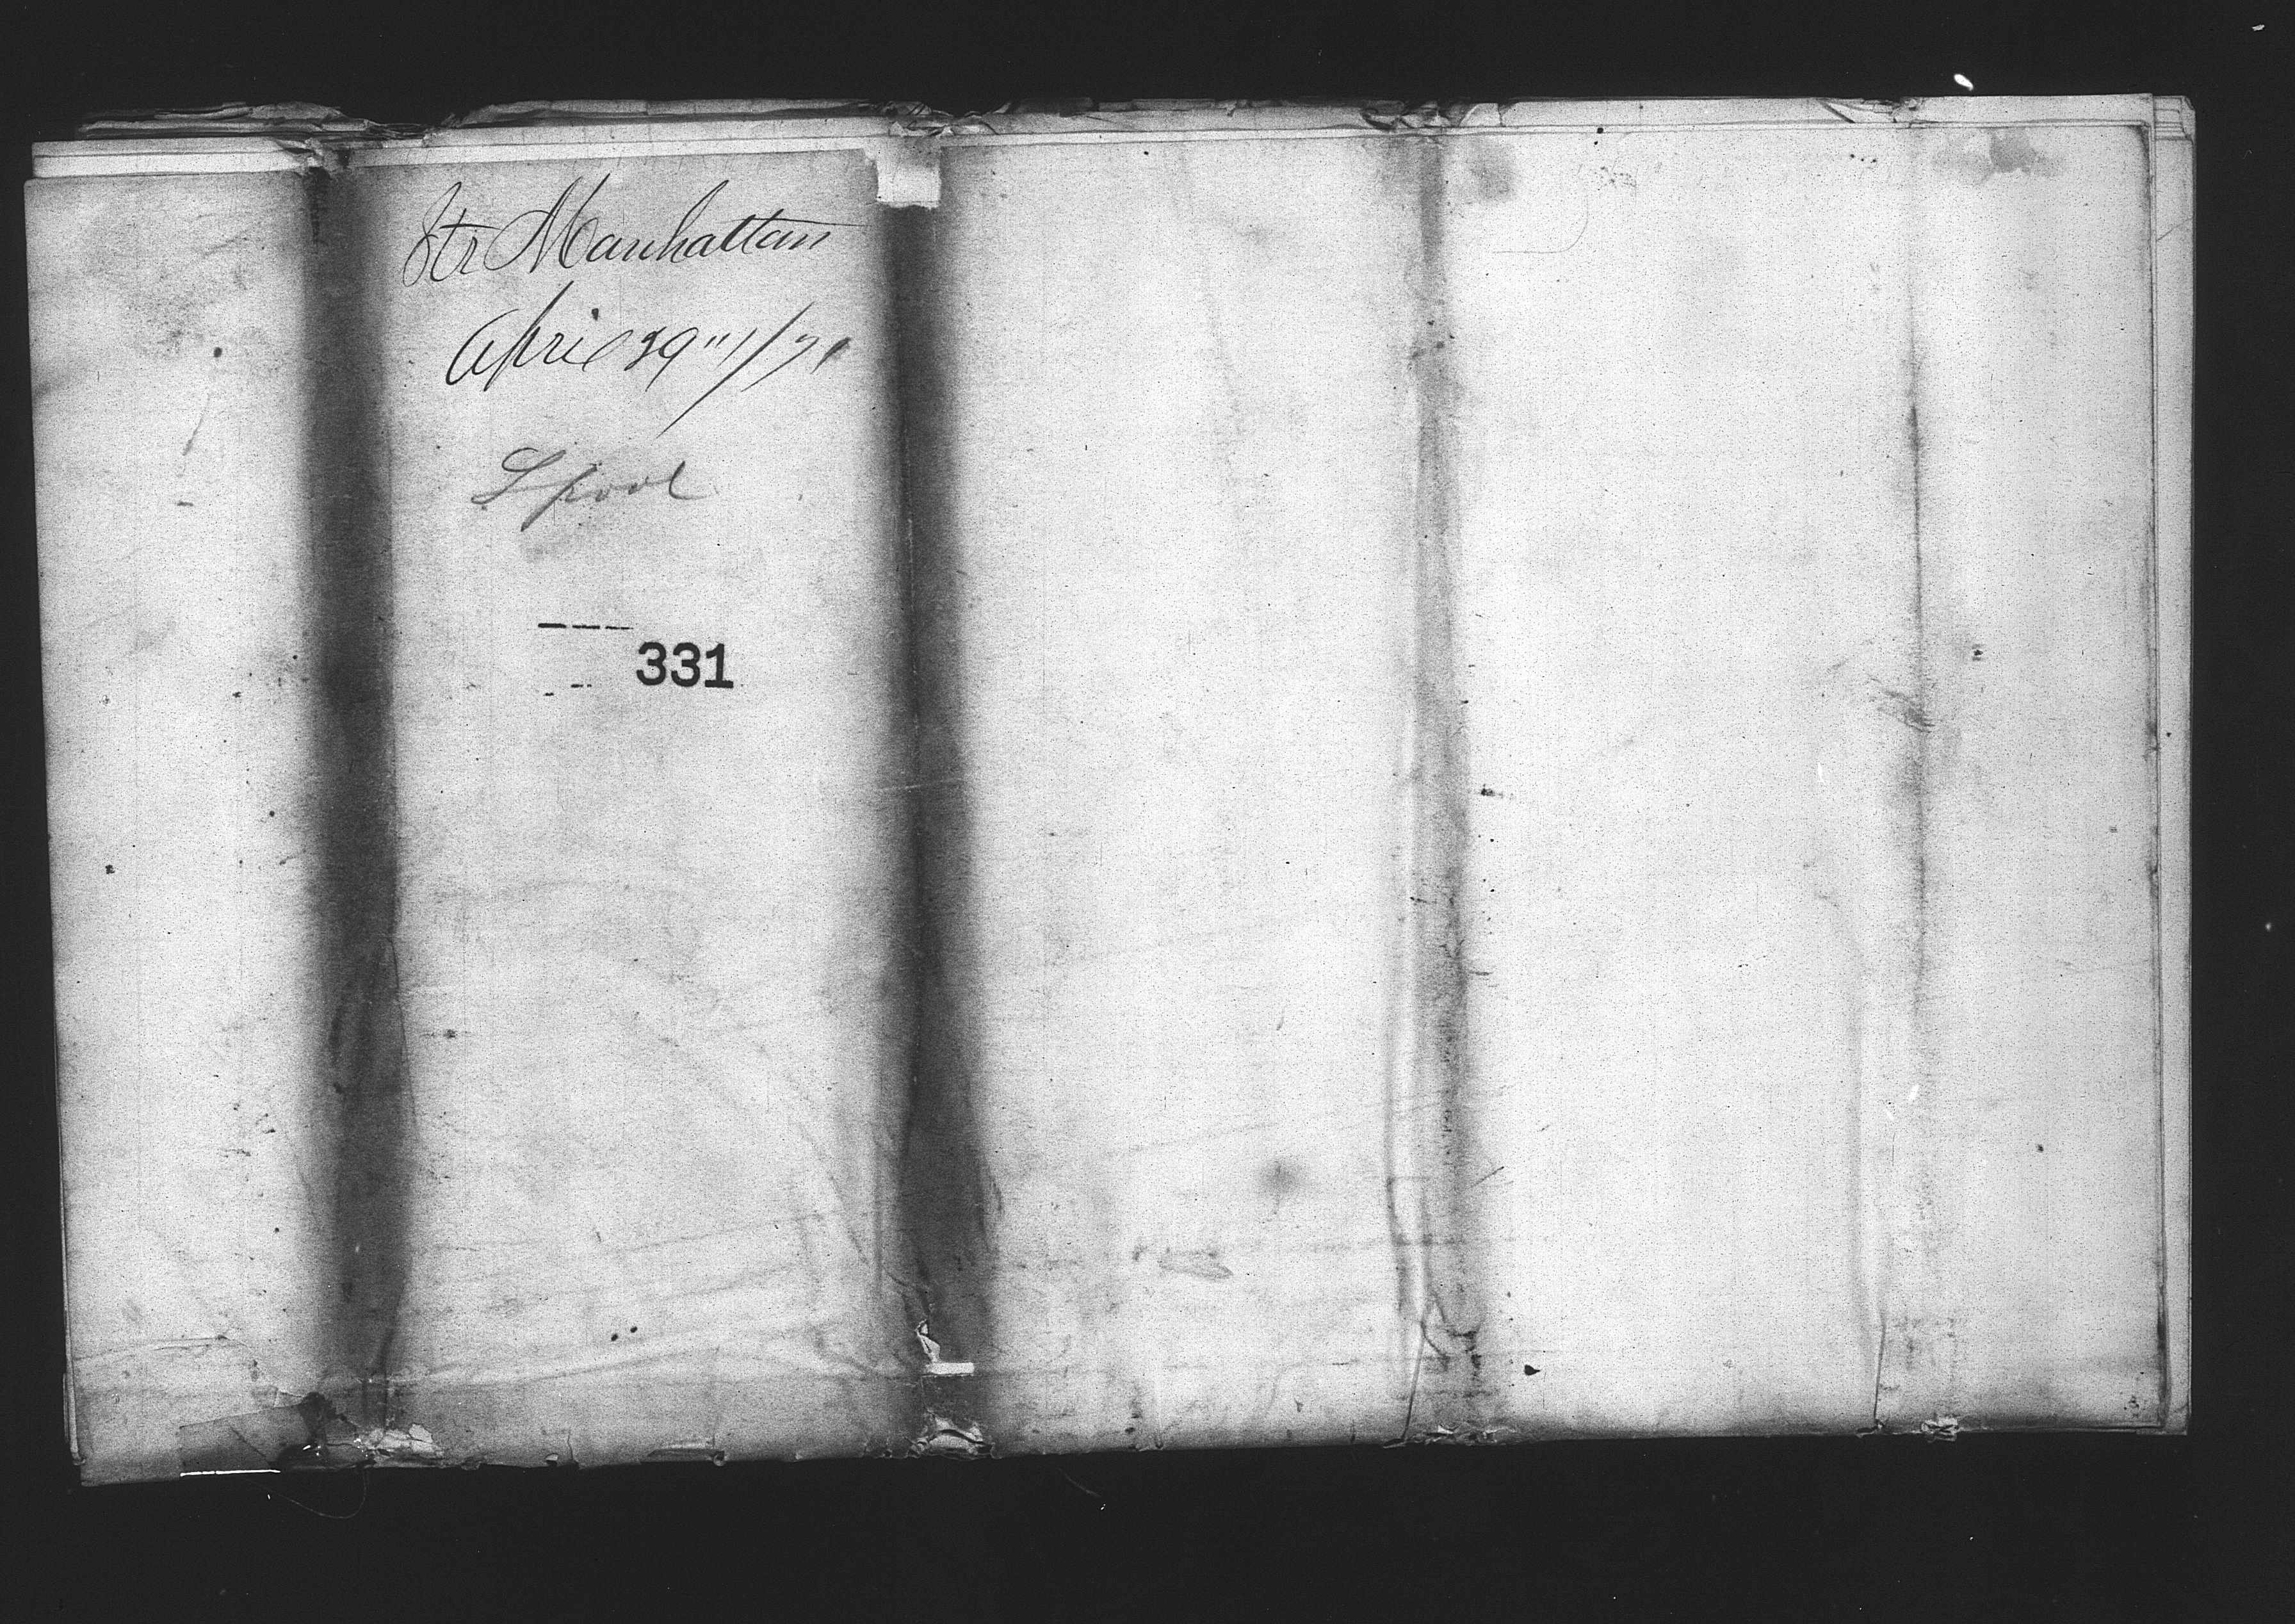 Str Manhattan
April 29"/71
Lpool
331